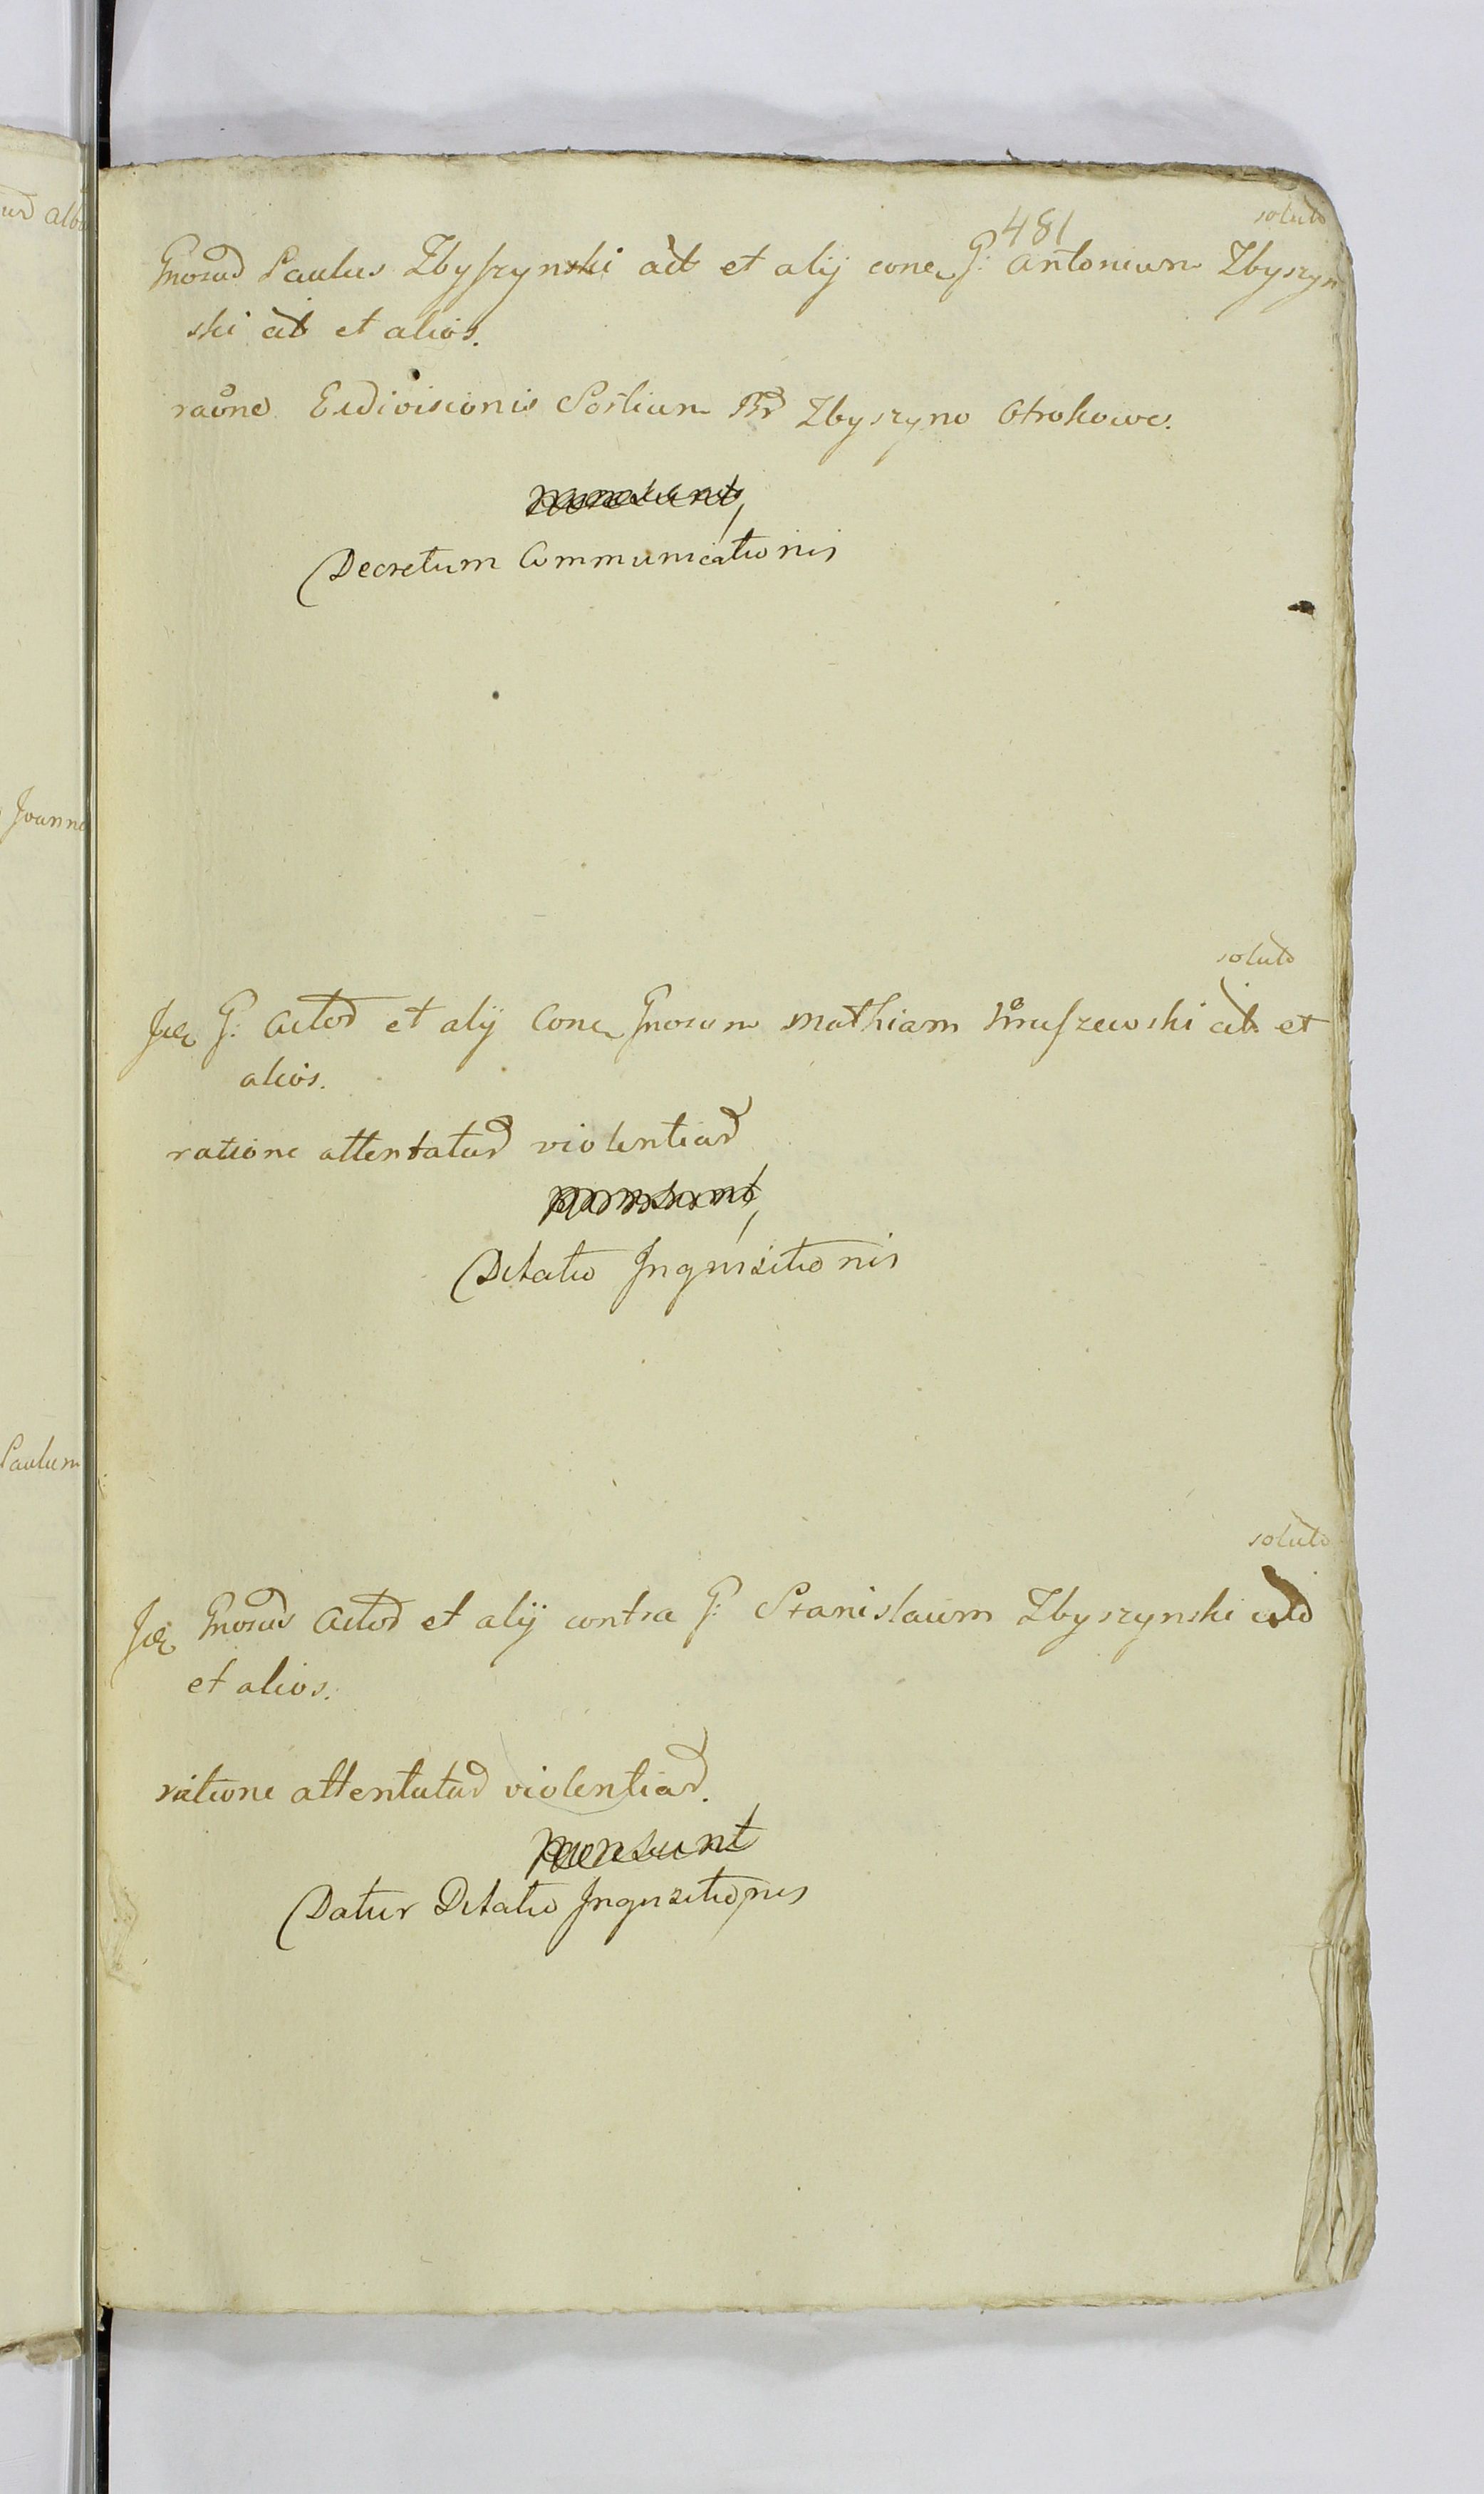 481
solut
Gnosus Paulus Zbyszynski act et alij conc G: Antonium Zbyszyn
ski ct et alios.
raōne Exdivisionis Sortium Br Zbyszyno Otrokowe.
Decretum Communicationis
solut
Ide G: Actor et alij Conc Gnosum Mathiam Kruszewski ct et
alios.
ratione attentatas violentias
Dilatio Inquisitionis
solut
Ide Gnosus Actor et alij contra G: Stanislaum Zbyszynski ct
et alios.
ratione attentatas violentias.
mensunt
Datur Dilatio Inquisitionis
Joanne
Paulum